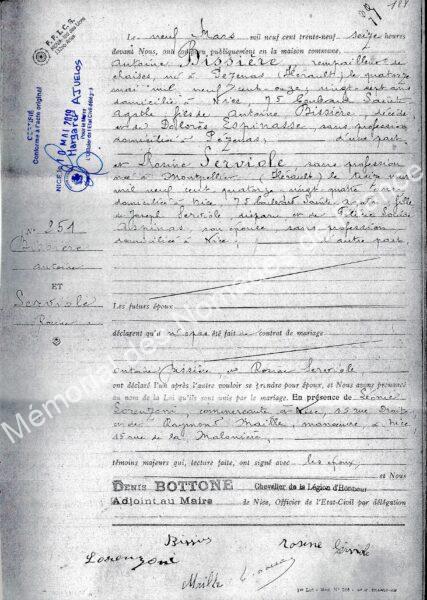 188
Le neuf Mars mil neuf cent trente-neuf seize heures
devant Nous, ont comparu publiquement en la maison commune,
Antoine Bissière, rempailleur de
chaises, né à Pézenas (Hérault) le quatorze
mai mil neuf cent onze, vingt-sept ans
domicilié à Nice, 75 boulevard Sainte
Agathe fils de Antoine Bissière, décédé
et de Dolorès Espinasse, sans profession
domiciliée à Pézenas, d'une part
et Rosine Serviole sans profession
née à Montpellier (Hérault) le treize
mil neuf cent quatorze vingt quatre ans
domiciliée à Nice, 75 boulevard Sainte Agathe fille
de Joseph Serviole, disparu et de
Espinas, son épouse, sans profession
domiciliée à Nice, d'autre part
N° 251
Bissière
Antoine
ET
Serviole
Rosine
Les futurs époux
déclarent qu'il n'a pas été fait de contrat de mariage
Antoine Bissière, et Rosine Serviole
ont déclaré l'un après l'autre vouloir se prendre pour époux, et Nous avons prononcé
au nom de la Loi qu'ils sont unis par le mariage. En présence de Léonie
Lorenzoni, commerçante à Nice, 15 rue Droite
et de Raymond Maille, manœuvre, à Nice
15 rue de la Malonière,
témoins majeurs qui, lecture faite, ont signé avec les époux,
et Nous
DENIS BOTTONE Chevalier de la Légion d'Honneur
Adjoint au Maire de Nice, Officier de l'Etat-Civil par délégation
Lorenzoni
Rosine
Maille
CERTIFIÉ
Conforme à l'acte original
NICE, le 10 MAI 2019
Margaret AJUELOS
Mémorial des Nomades de France